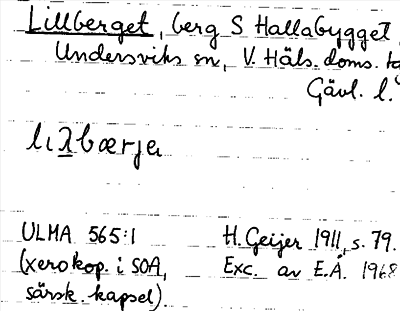 Lillberget, berg S Hallabygget,
Undersviks sn, V. Häls. doms.
Gävl. l.
lıλbærjeı
ULMA 565:1 H. Geijer 1911, s. 79.
(xerokop. i SOA, Exc. av E.Å. 1968
särsk. kapsel).